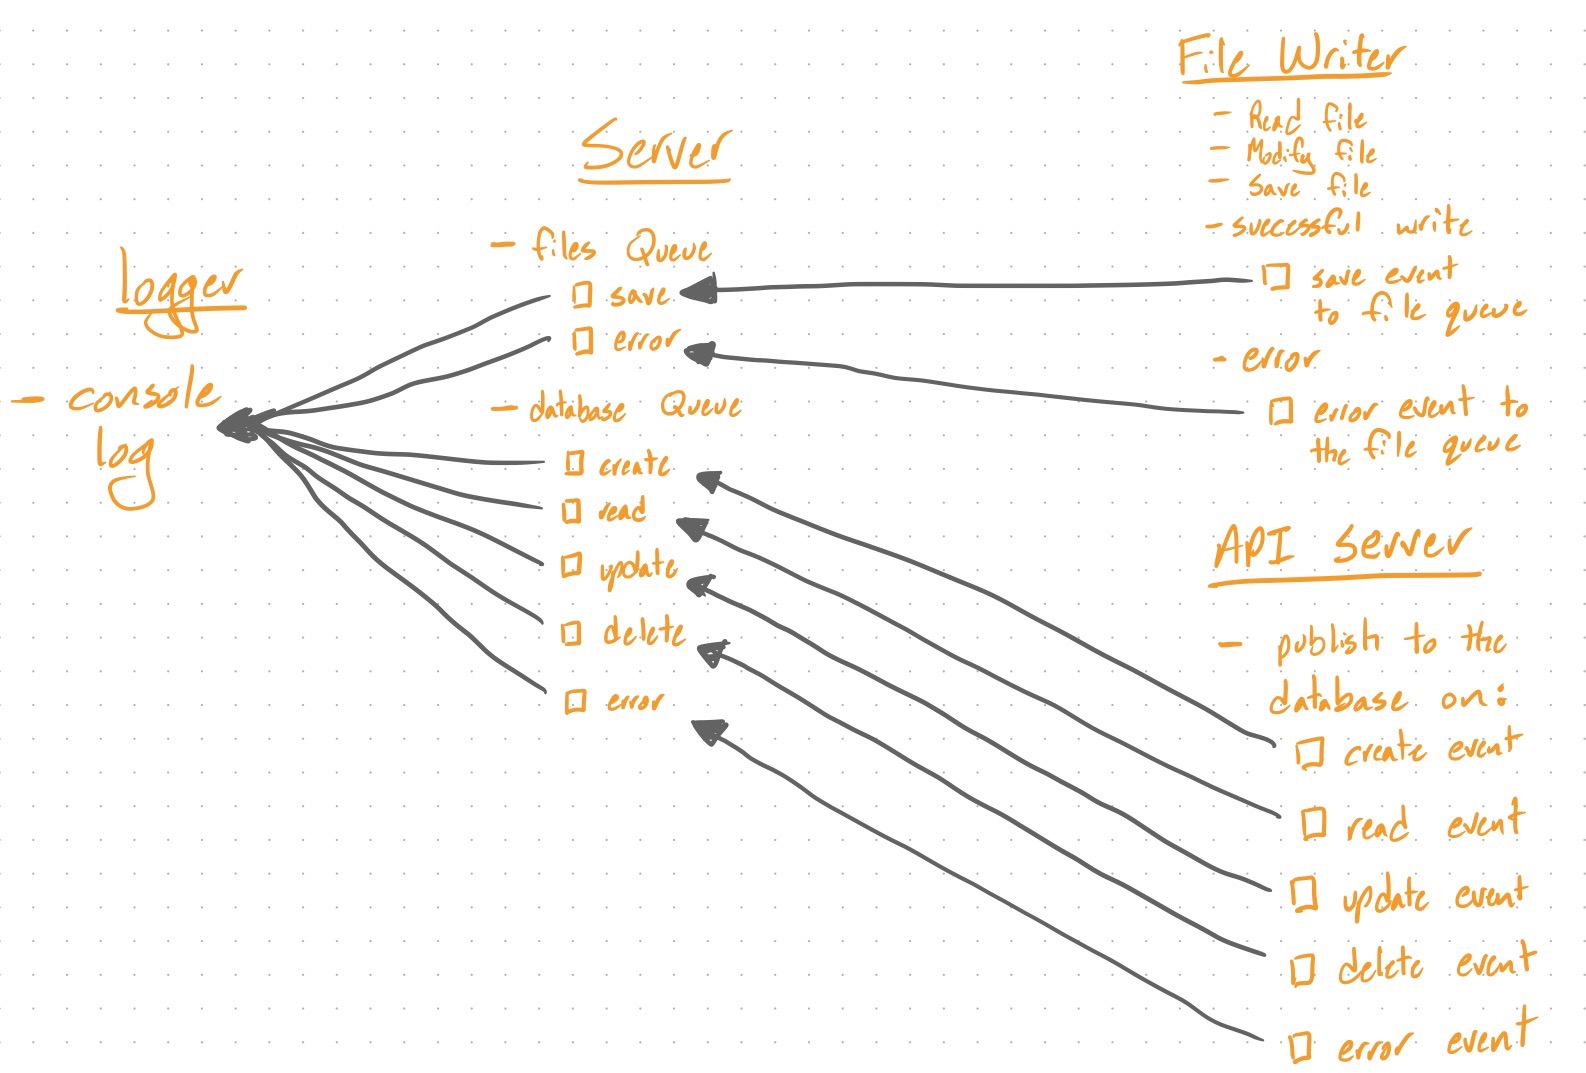 logger
- console
log
Server
- files Queue
save
error
- database Queue
create
read
update
delete
error
File Writer
- Read file
- Modify file
- Save file
- successful write
save event
to file queue
- error
error event to
the file queue
API Server
- publish to the
database on:
create event
read event
update event
delete event
error event